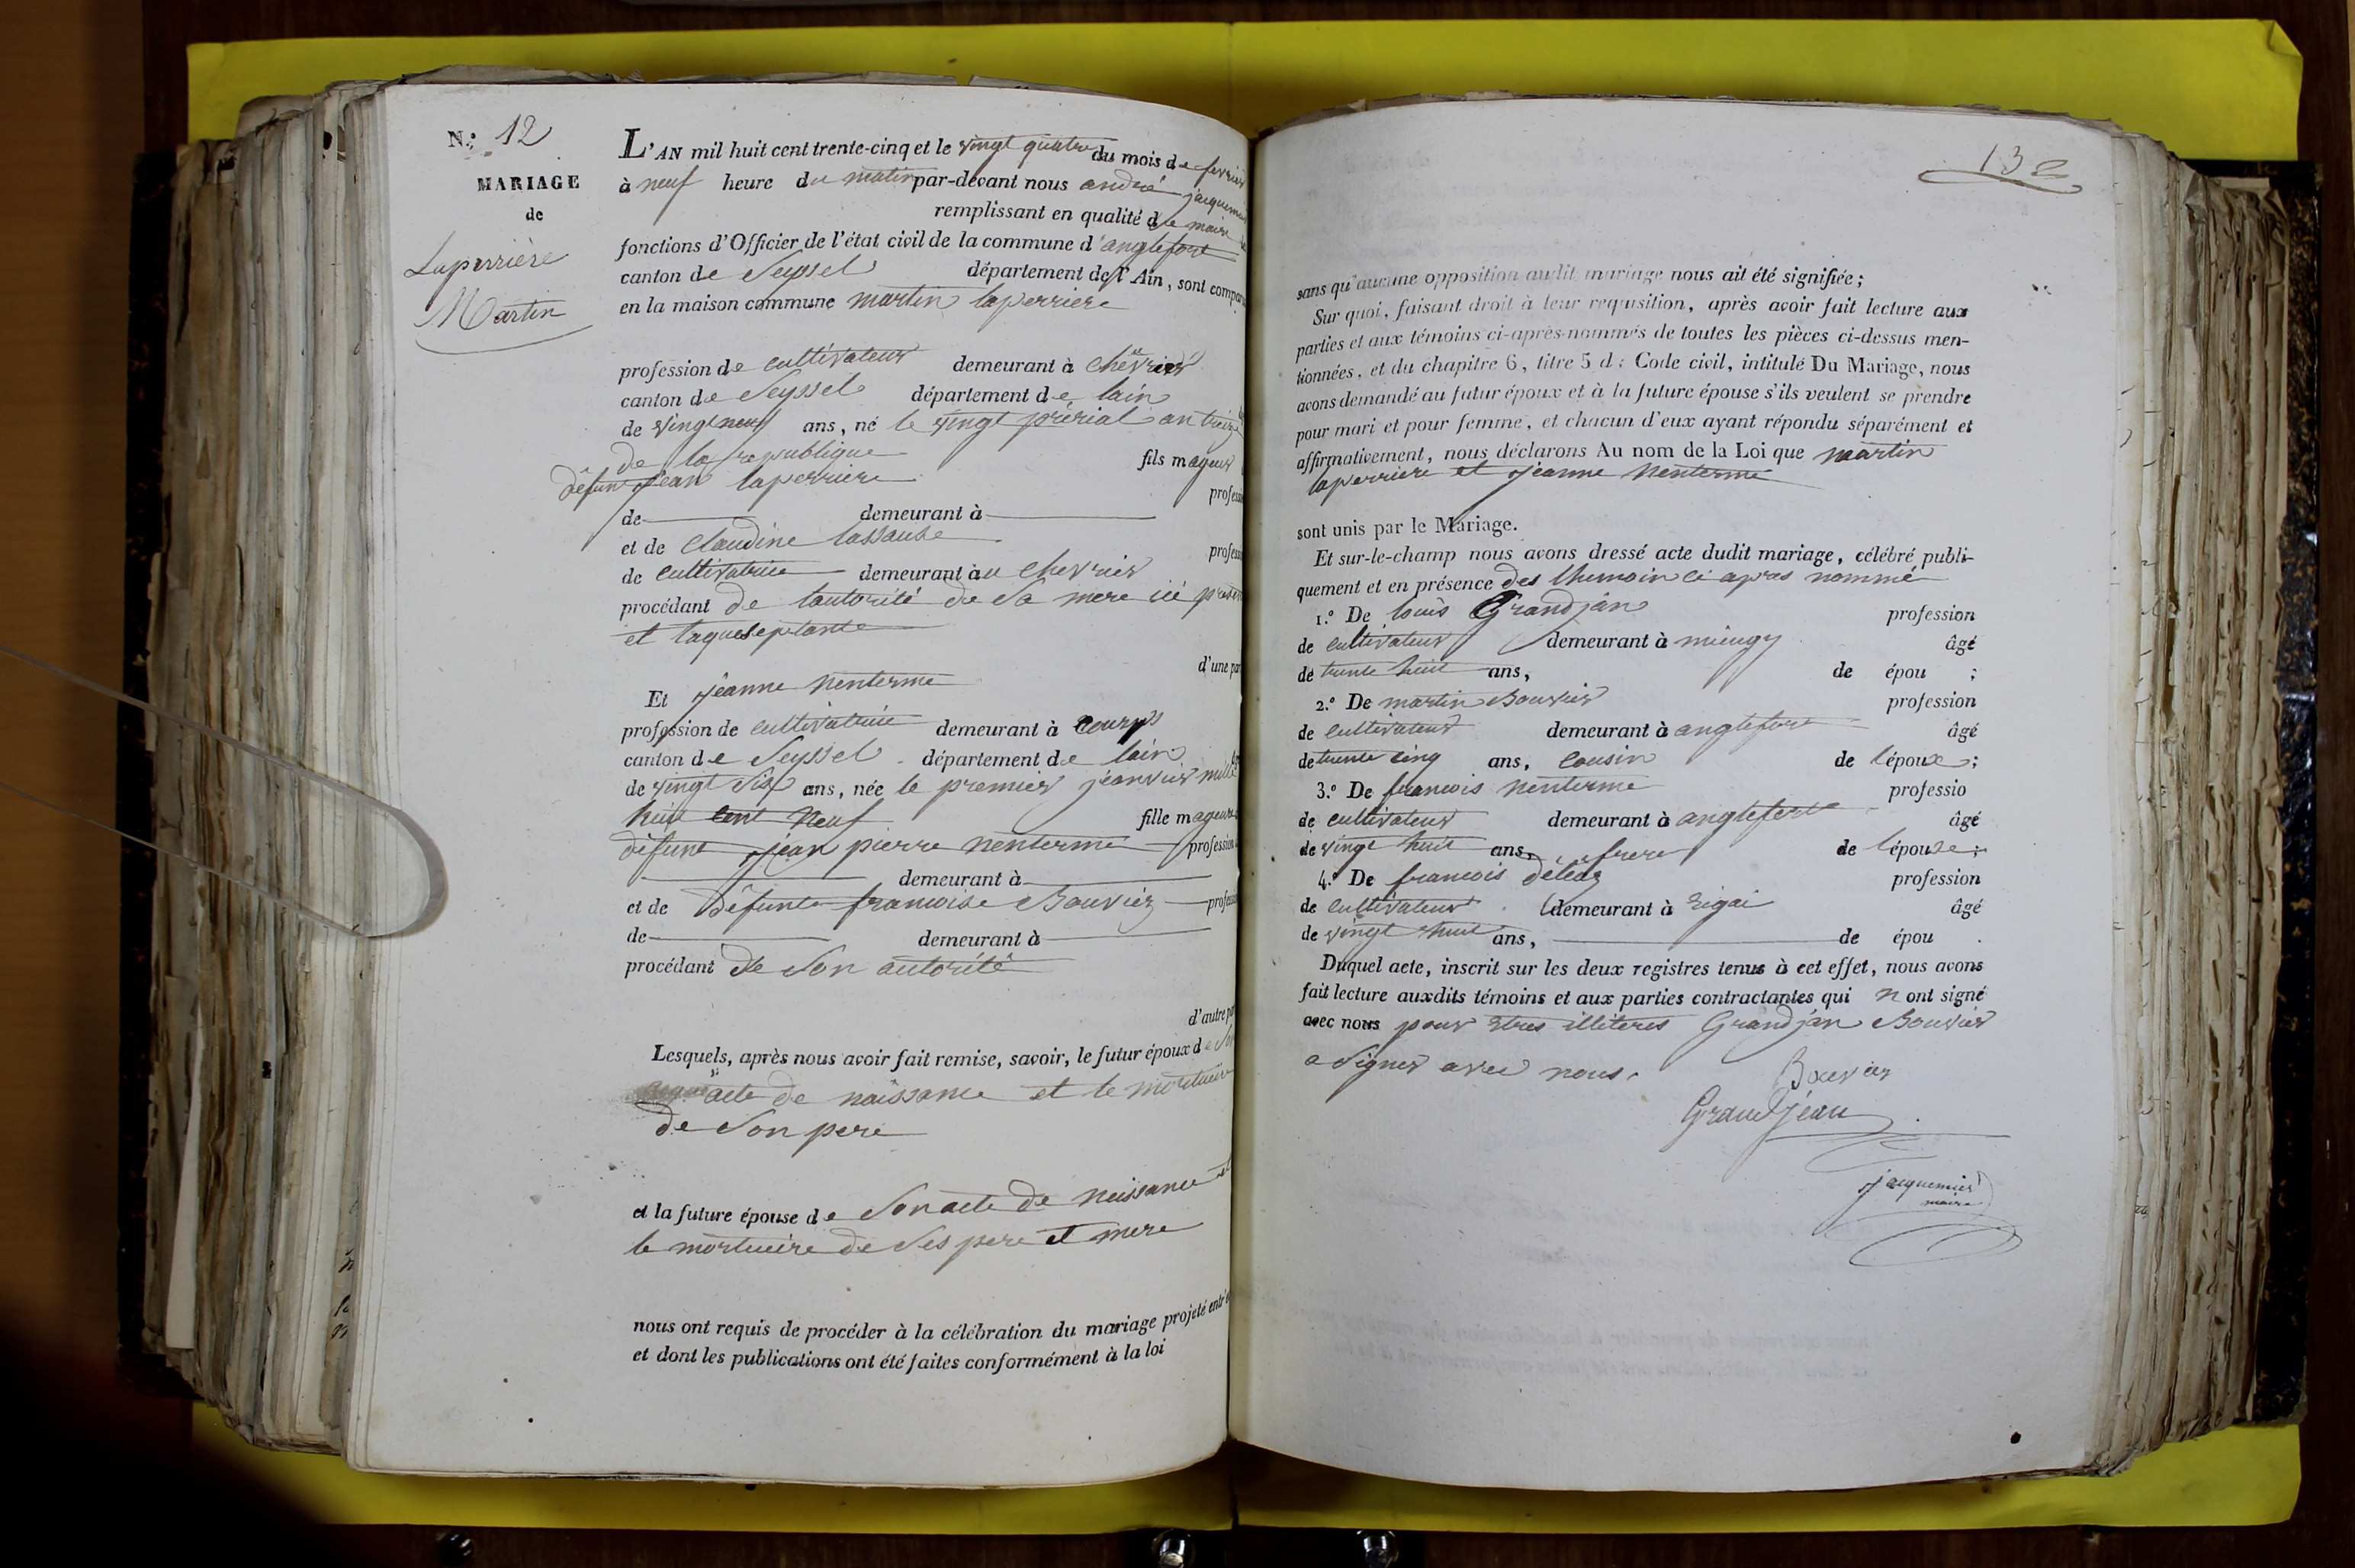 N.° 12
MARIAGE
de
Laperrière
Martin
L'AN mil huit cent trente-cinq et le vingt quatre du mois de fevrier
à neuf heure du matin par-devant nous andré jacquemier
remplissant en qualité de maire
fonctions d'Officier de l'état civil de la commune d'anglefort
canton de Seyssel département de l'Ain, sont compar
en la maison commune martin laperriere
profession de cultivateur demeurant à chevrier
canton de Seyssel département de lain
de vingt neuf ans, né le vingt prérial an treize
de la republique fils mageur
défunt jean laperriere profess
de demeurant à
et de Claudine lassause profess
de cultivatrice demeurant àu chevrier
procédant de lautorité de Sa mere ici presen
et
d'une par
Et jeanne nenterme
profession de cultivatrice demeurant à
canton de Seyssel département de lain
de vingt Six ans, née le premier jeanvier mille
huit cent neuf fille mageure
défunt jean pierre nenterme profession
demeurant à
et de défunte francoise Bouvier profess
de demeurant à
procédant de Son autorité
d'autre par
Lesquels, après nous avoir fait remise, savoir, le futur époux de Son
acte de naissance et le mortuaire
de Son pere
et la future épouse de Son acte de naissance et
le mortuaire de Ses pere et mere
nous ont requis de procéder à la célébration du mariage projeté entr'e
et dont les publications ont été faites conformément à la loi
132
sans qu'aucune opposition audit mariage nous ait été signifiée;
Sur quoi, faisant droit à leur requisition, après avoir fait lecture aux
parties et aux témoins ci-après-nommés de toutes les pièces ci-dessus men-
tionnées, et du chapitre 6, titre 5 d: Code civil, intitulé Du Mariage, nous
avons demandé au futur époux et à la future épouse s'ils veulent se prendre
pour mari et pour femme, et chacun d'eux ayant répondu séparément et
affirmativement, nous déclarons Au nom de la Loi que martin
laperriere et jeanne nenterme
sont unis par le Mariage.
Et sur-le-champ nous avons dressé acte dudit mariage, célébré publi-
quement et en présence des themoin ci apres nommé
1.° De louis Grandjan profession
de cultivateur demeurant à mieugy âgé
de trente huit ans, de épou ;
2.° De martin Bouvier profession
de cultivateur demeurant à anglefort âgé
de trente cinq ans, cousin de lépoux;
3.° De francois nenterme professio
de cultivateur demeurant à anglefort âgé
de vingt huit ans, frere de lépouse;
4.° De francois profession
de cultivateur demeurant à rigai âgé
de vingt huit ans, de épou .
Duquel acte, inscrit sur les deux registres tenus à cet effet, nous avons
fait lecture auxdits témoins et aux parties contractantes qui n ont signé
avec nous pour Etres illiteres Grandjan Bouvier
a Signer avec nous.
Bouvier
Grandjean
jacquemier
maire